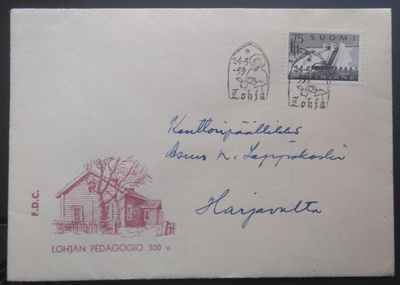 75
SUOMI
FINLAND
24-5
-59
Lohja
24-5
-59
Lohja
Konttoripäällikkö
Harjavalta
F.D.C.
LOHJAN PEDAGOGIO 300 v.